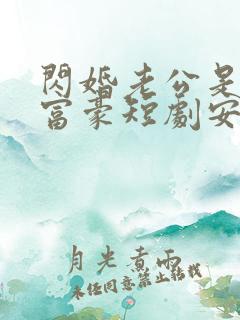 閃婚老公是
富豪短劇安
月光煮雨
未經同意禁止轉載